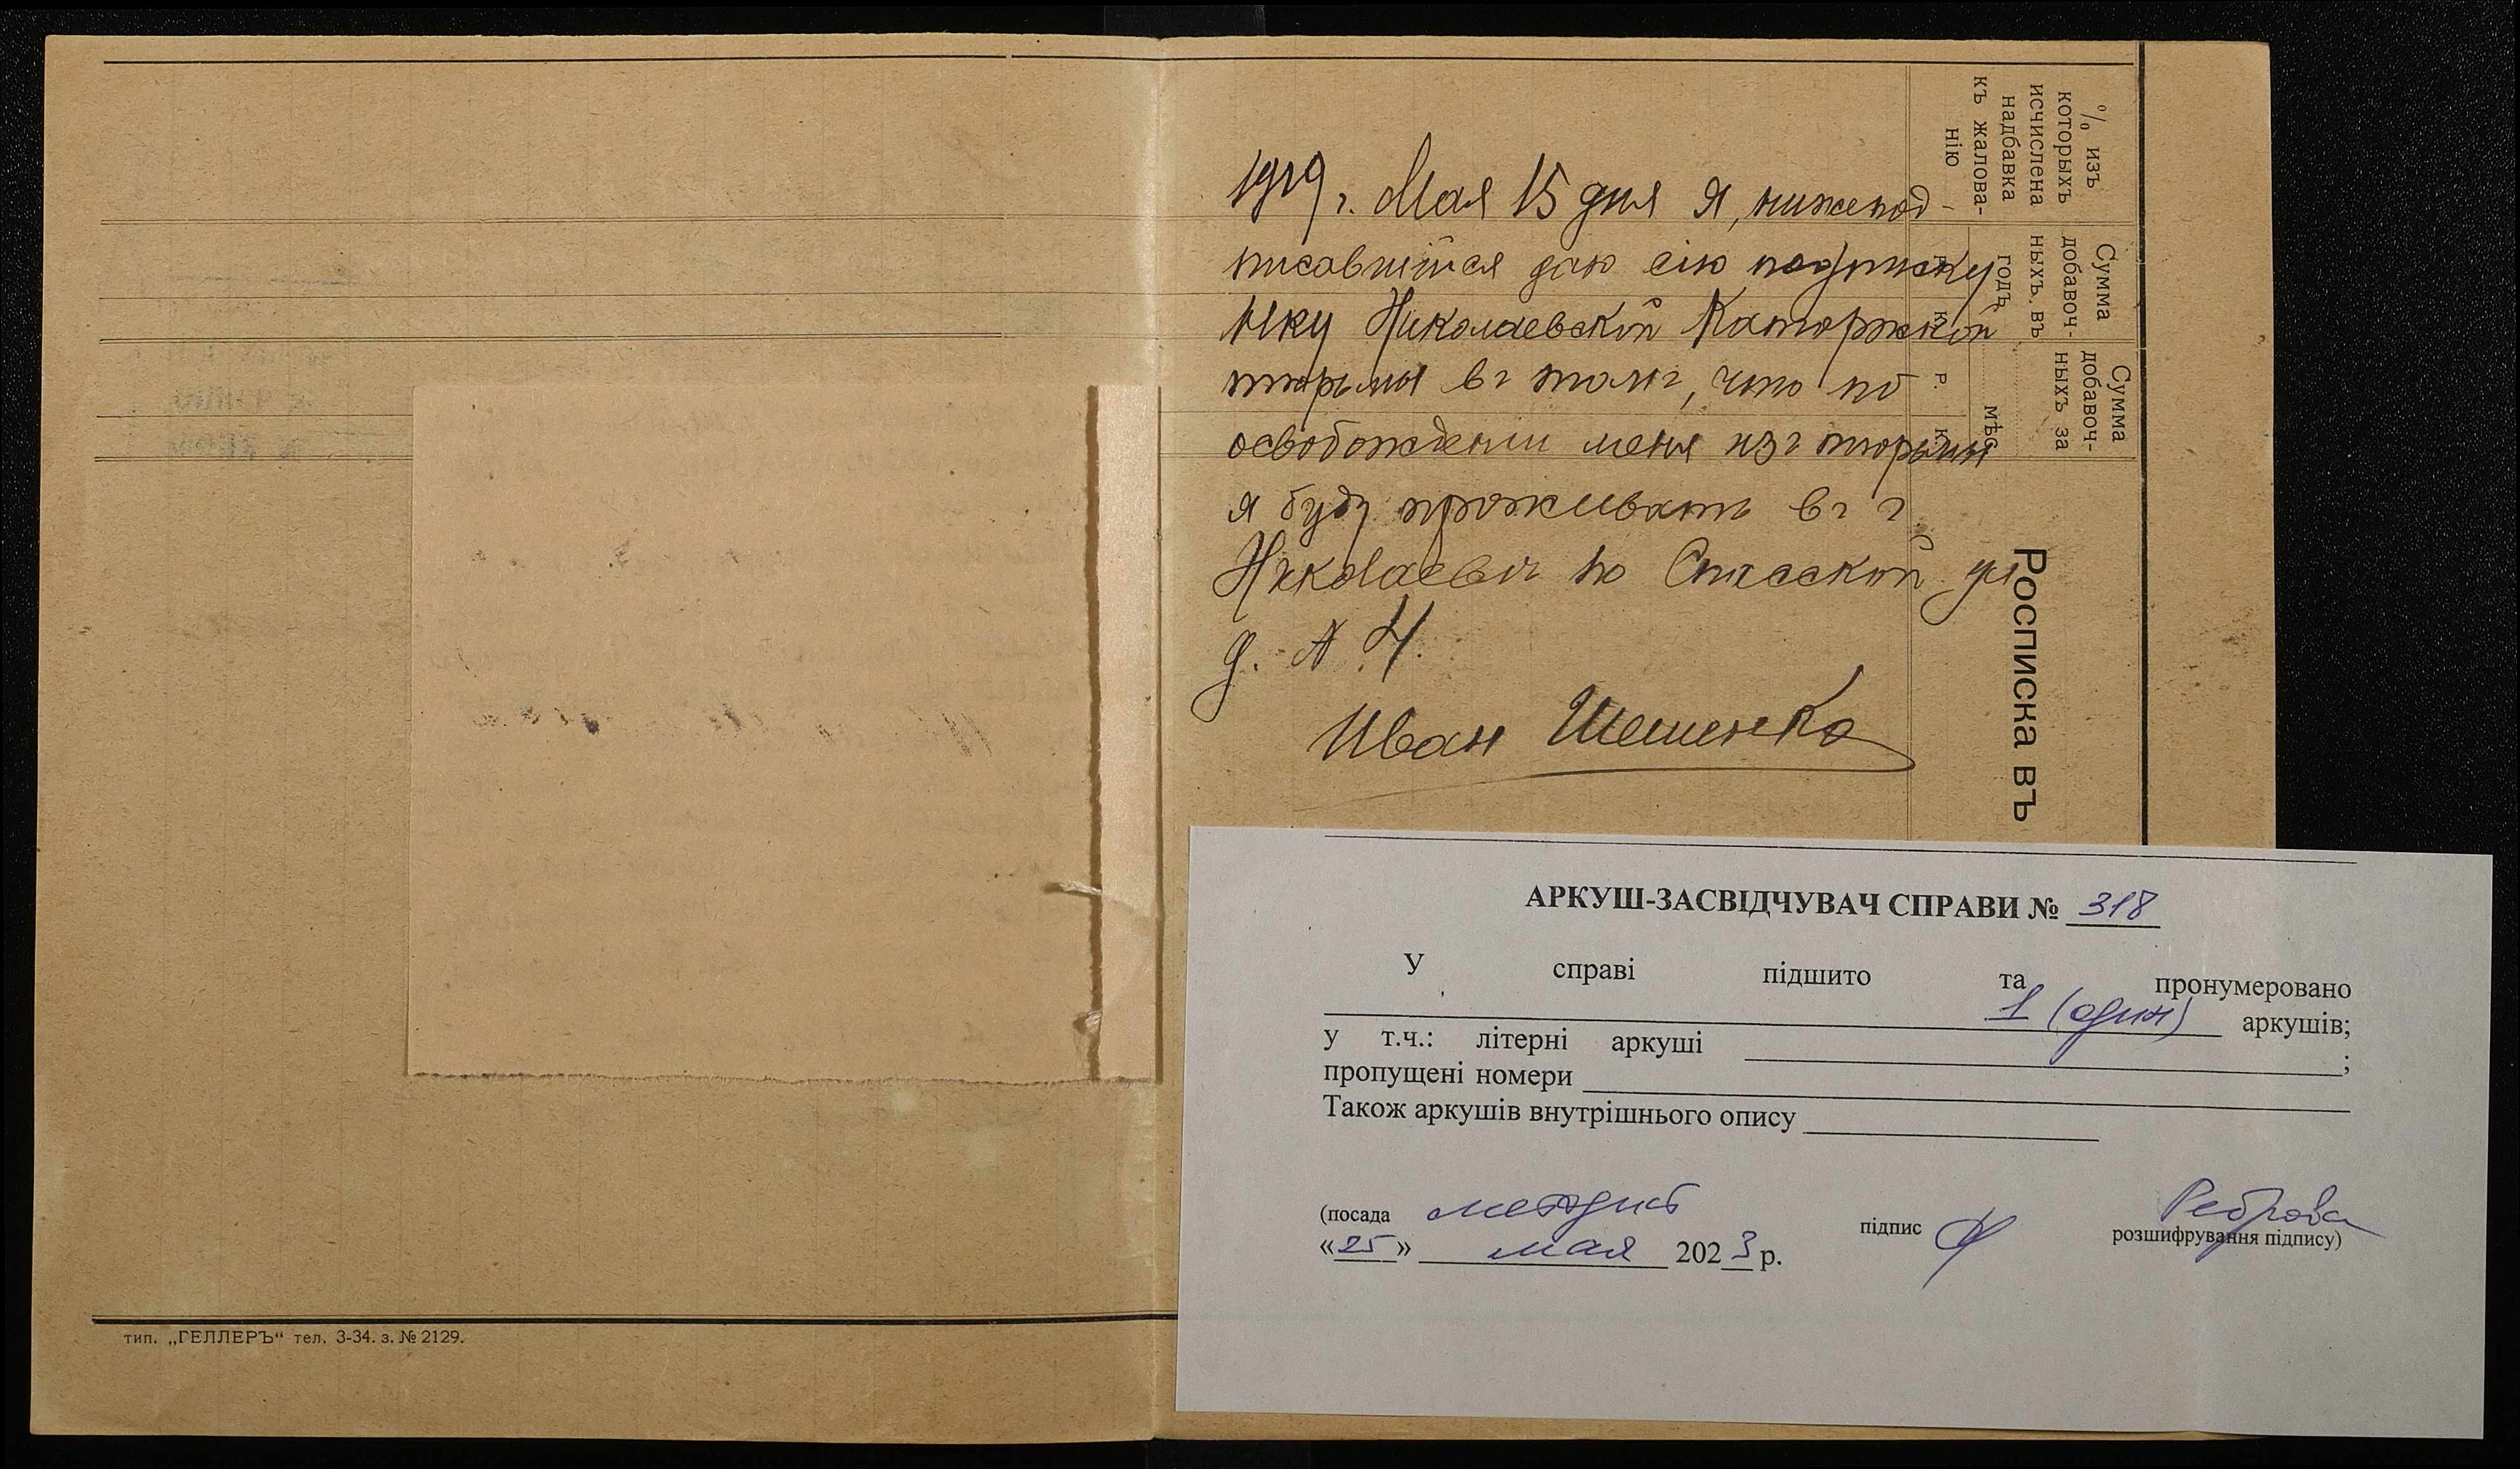 1919 г. Мая 15 дня я, нижепод-
писавшийся даю сію подписку
Нку Николаевской Каторжской
тюрьмы въ томъ, что по
освобожденіи меня изъ тюрьмы
я буду проживать въ г.
Николаевѣ по Спасской ул
д. № 4.
Иван Шешенко
% изъ
которыхъ
исчислена
надбавка
къ жалова-
нію
Сумма
добавоч-
ныхъ въ
годъ
Р. К.
Сумма
добавоч-
ныхъ за
мѣс.
Р. К.
Росписка въ
АРКУШ-ЗАСВІДЧУВАЧ СПРАВИ № 318
У справі підшито та пронумеровано
1 (один) аркушів;
у т.ч.: літерні аркуші ;
пропущені номери
Також аркушів внутрішнього опису
(посада методист підпис Реброва
розшифрування підпису)
«25» мая 2023 р.
тип. „ГЕЛЛЕРЪ“ тел. 3-34. з. № 2129.